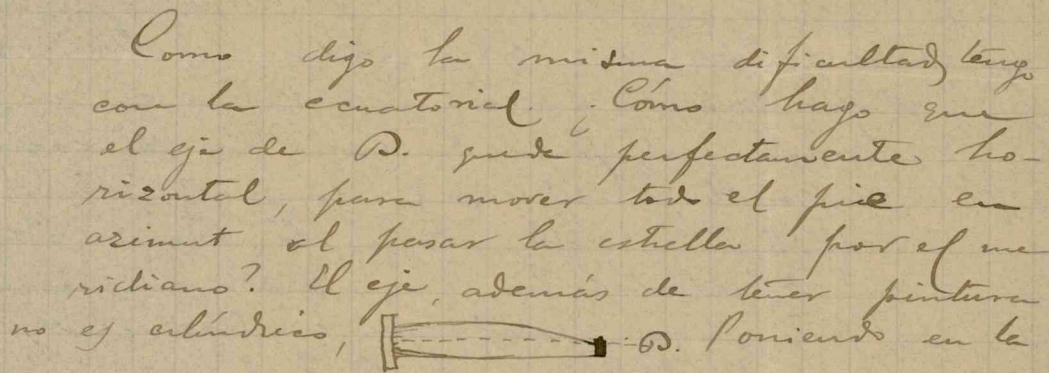 Como digo la misma dificultad, tengo
con la ecuatorial. ¿Cómo hago que
el eje de D. quede perfectamente ho-
rizontal, para mover todo el pie en
azimut al pasar la estrella por el me
ridiano? El eje, además de tener pintura
no es cilíndrico, D. Poniendo en la